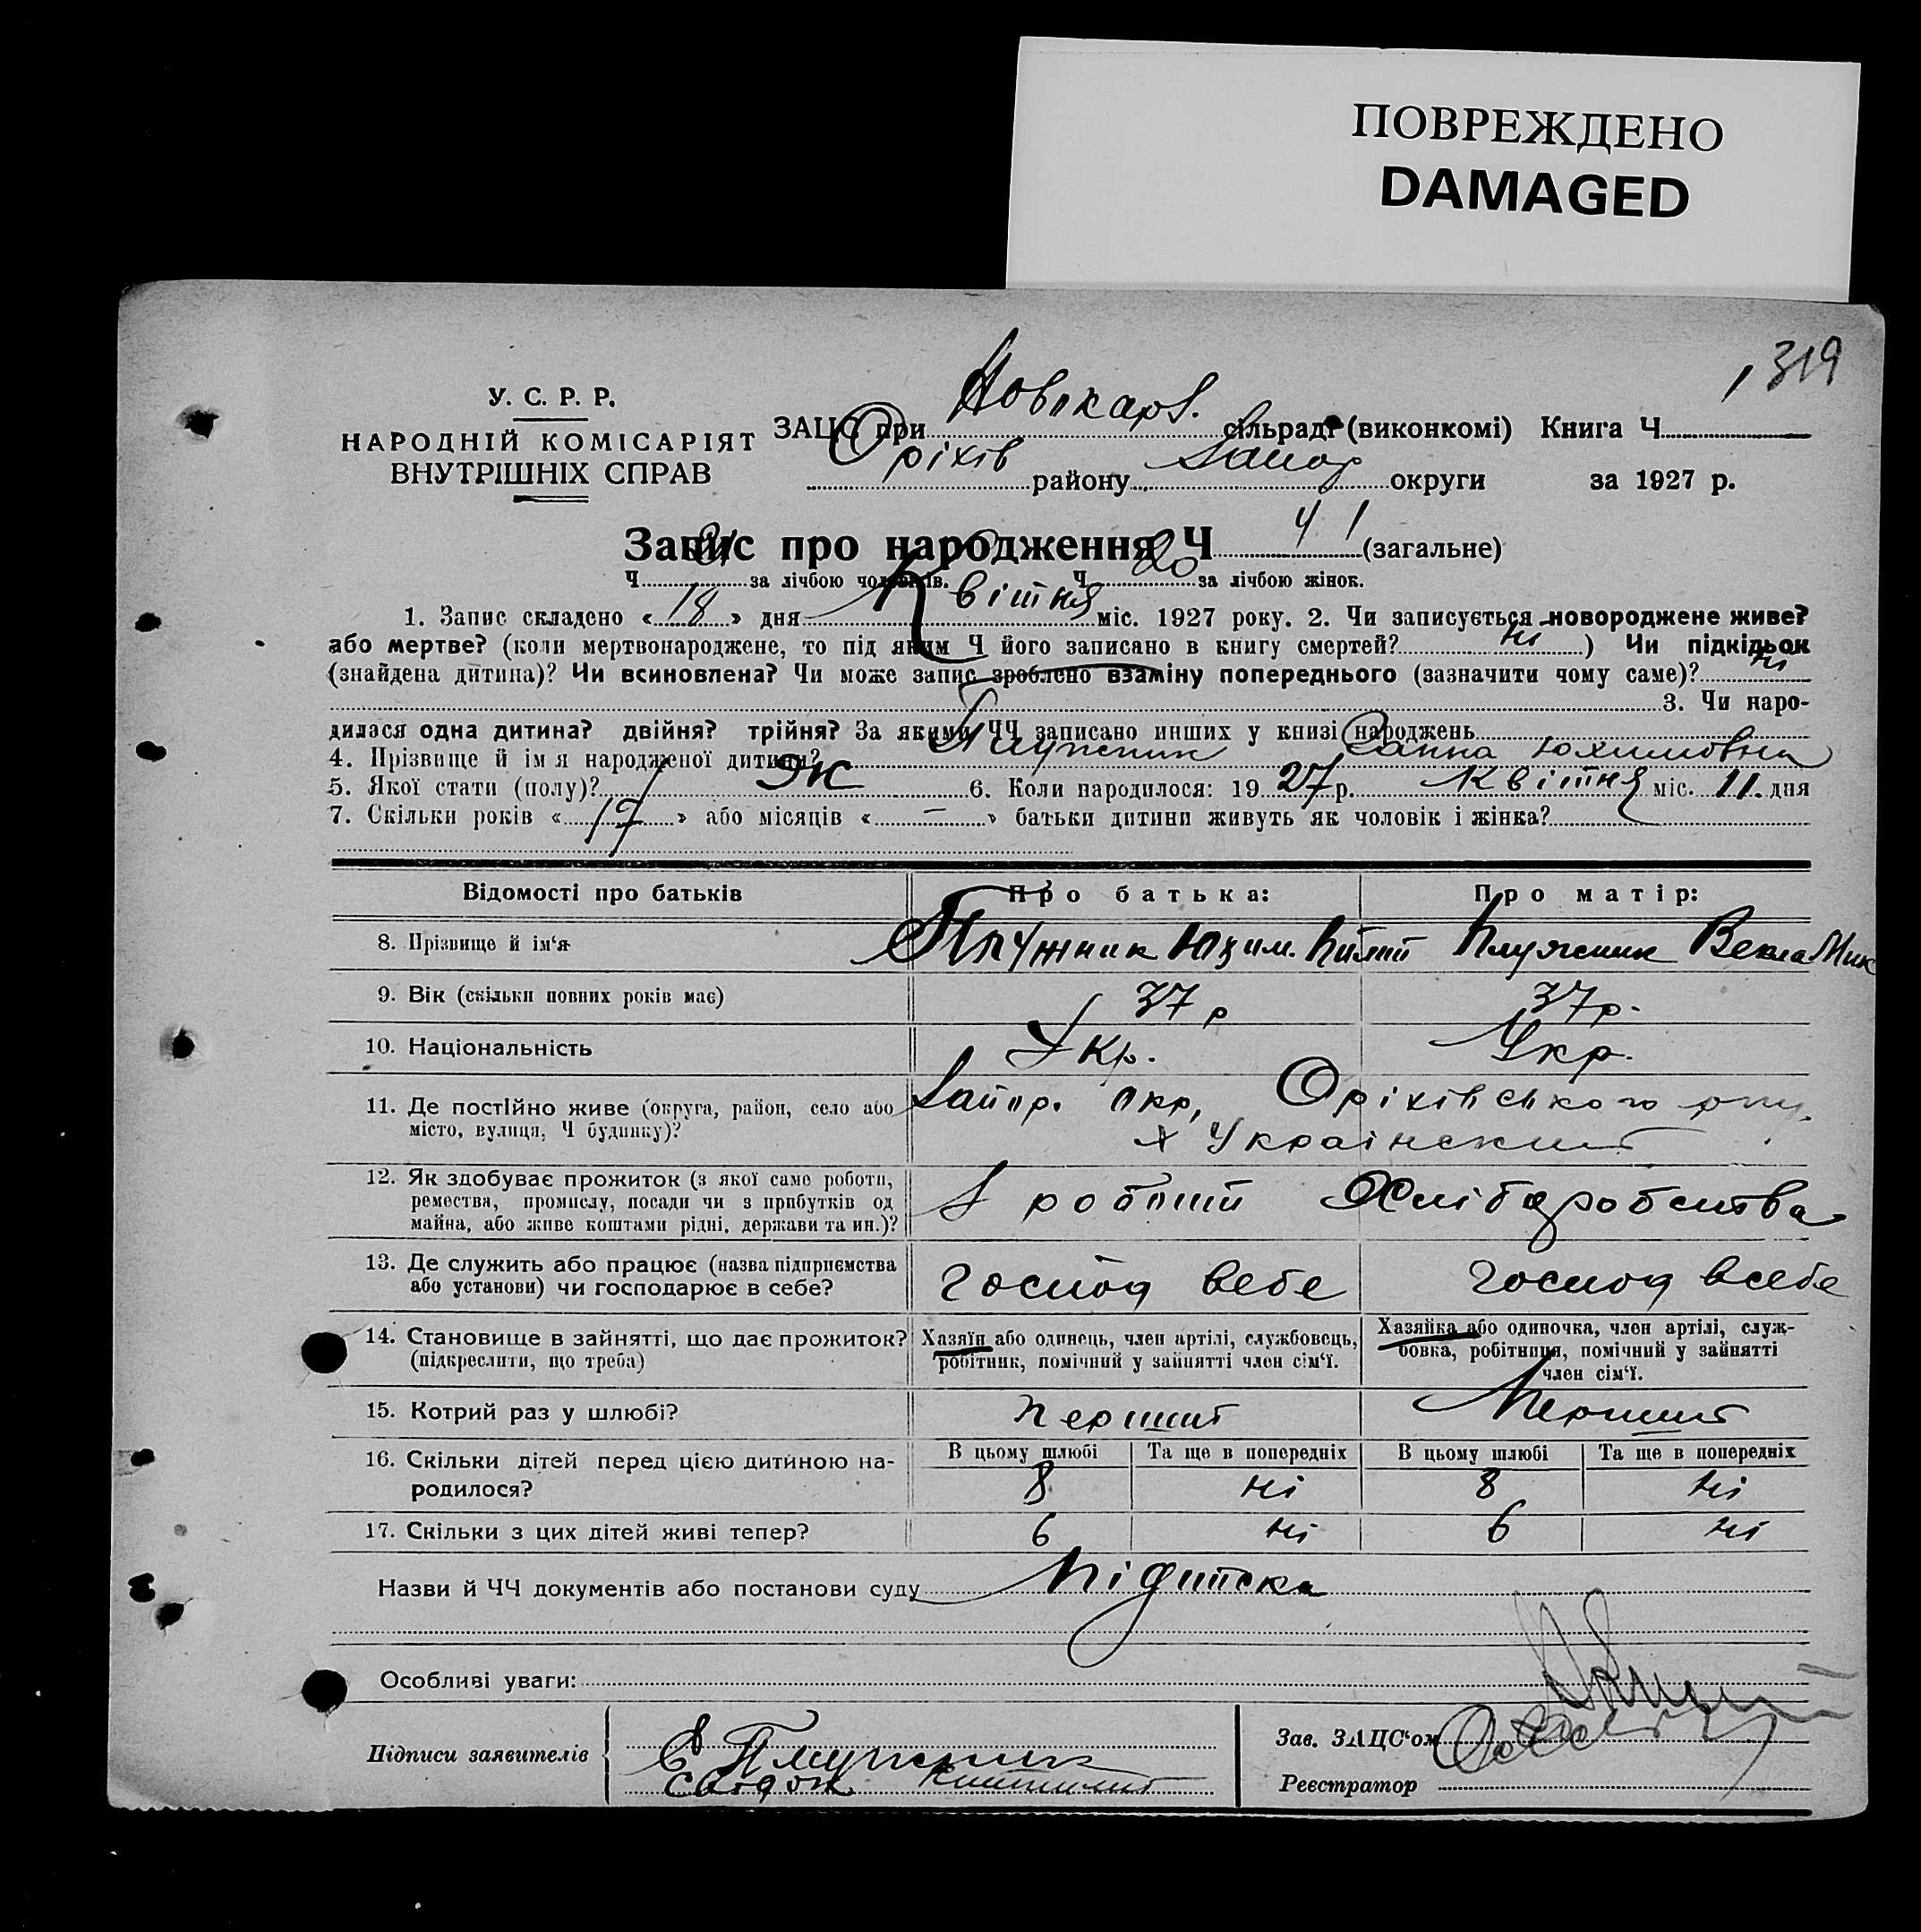 ПОВРЕЖДЕНО
DAMAGED
319
У. С. Р. Р.
НАРОДНІЙ КОМІСАРІЯТ
ВНУТРІШНІХ СПРАВ
ЗАЦС при Новокарл. сільраді (виконкомі) Книга Ч.
Оріхів району Запор округи за 1927 р.
Запис про народження Ч 41 (загальне)
Ч. 21 за лічбою чоловіків. Ч. 20 за лічбою жінок.
1. Запис складено « 18 » дня Квітня міс. 1927 року. 2. Чи записується новороджене живе?
або мертве? (коли мертвонароджене, то під яким Ч його записано в книгу смертей? ні ) Чи підкідьок
(знайдена дитина)? Чи всиновлена? Чи може запис зроблено взаміну попереднього (зазначити чому саме)? ні
3. Чи наро-
дилася одна дитина? двійня? трійня? За якими ЧЧ записано инших у книзі народжень
4. Прізвище й ім'я народженої дитини? Плужник Ганна Юхимовна
5. Якої стати (полу)? Ж 6. Коли народилося: 19 27 р. Квітня міс. 11. дня
7. Скільки років « 17 » або місяців « — » батьки дитини живуть як чоловік і жінка?
Відомості про батьків Про батька: Про матір:
8. Прізвище й ім'я Плужник Юхим. Плужник Векла Мик
9. Вік (скільки повних років має) 37 р 37 р.
10. Національність Укр. Укр.
11. Де постійно живе (округа, район, село або Запор. окр, Оріхівського
місто, вулиця, Ч будинку)? х Украінский
12. Як здобуває прожиток (з якої саме роботи,
ремества, промислу, посади чи з прибутків од
майна, або живе коштами рідні, держави та ин.)? Хліборобства
13. Де служить або працює (назва підприємства
або установи) чи господарює в себе? господ вебе господ всебе
14. Становище в зайнятті, що дає прожиток?
(підкреслити, що треба)
Хазяїн або одинець, член артілі, службовець,
робітник, помічний у зайнятті член сім'ї.
Хазяйка або одиночка, член артілі, служ-
бовка, робітниця, помічний у зайнятті
член сім'ї.
15. Котрий раз у шлюбі? первший Перший
16. Скільки дітей перед цією дитиною на-
родилося?
В цьому шлюбі Та ще в попередніх В цьому шлюбі Та ще в попередніх
8 ні 8 ні
17. Скільки з цих дітей живі тепер? 6 ні 6 ні
Назви й ЧЧ документів або постанови суду Підписка
Особливі уваги:
Підписи заявителів Є Плужник
Зав. ЗАЦС'ом
Реєстратор